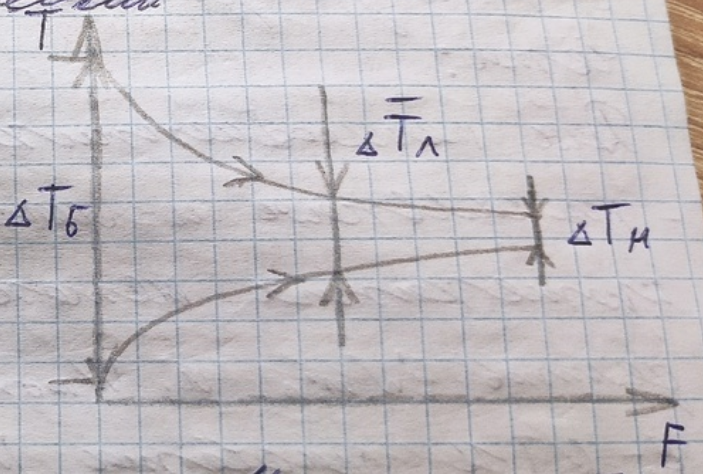 T
ΔT̅л
ΔTб
ΔTм
F